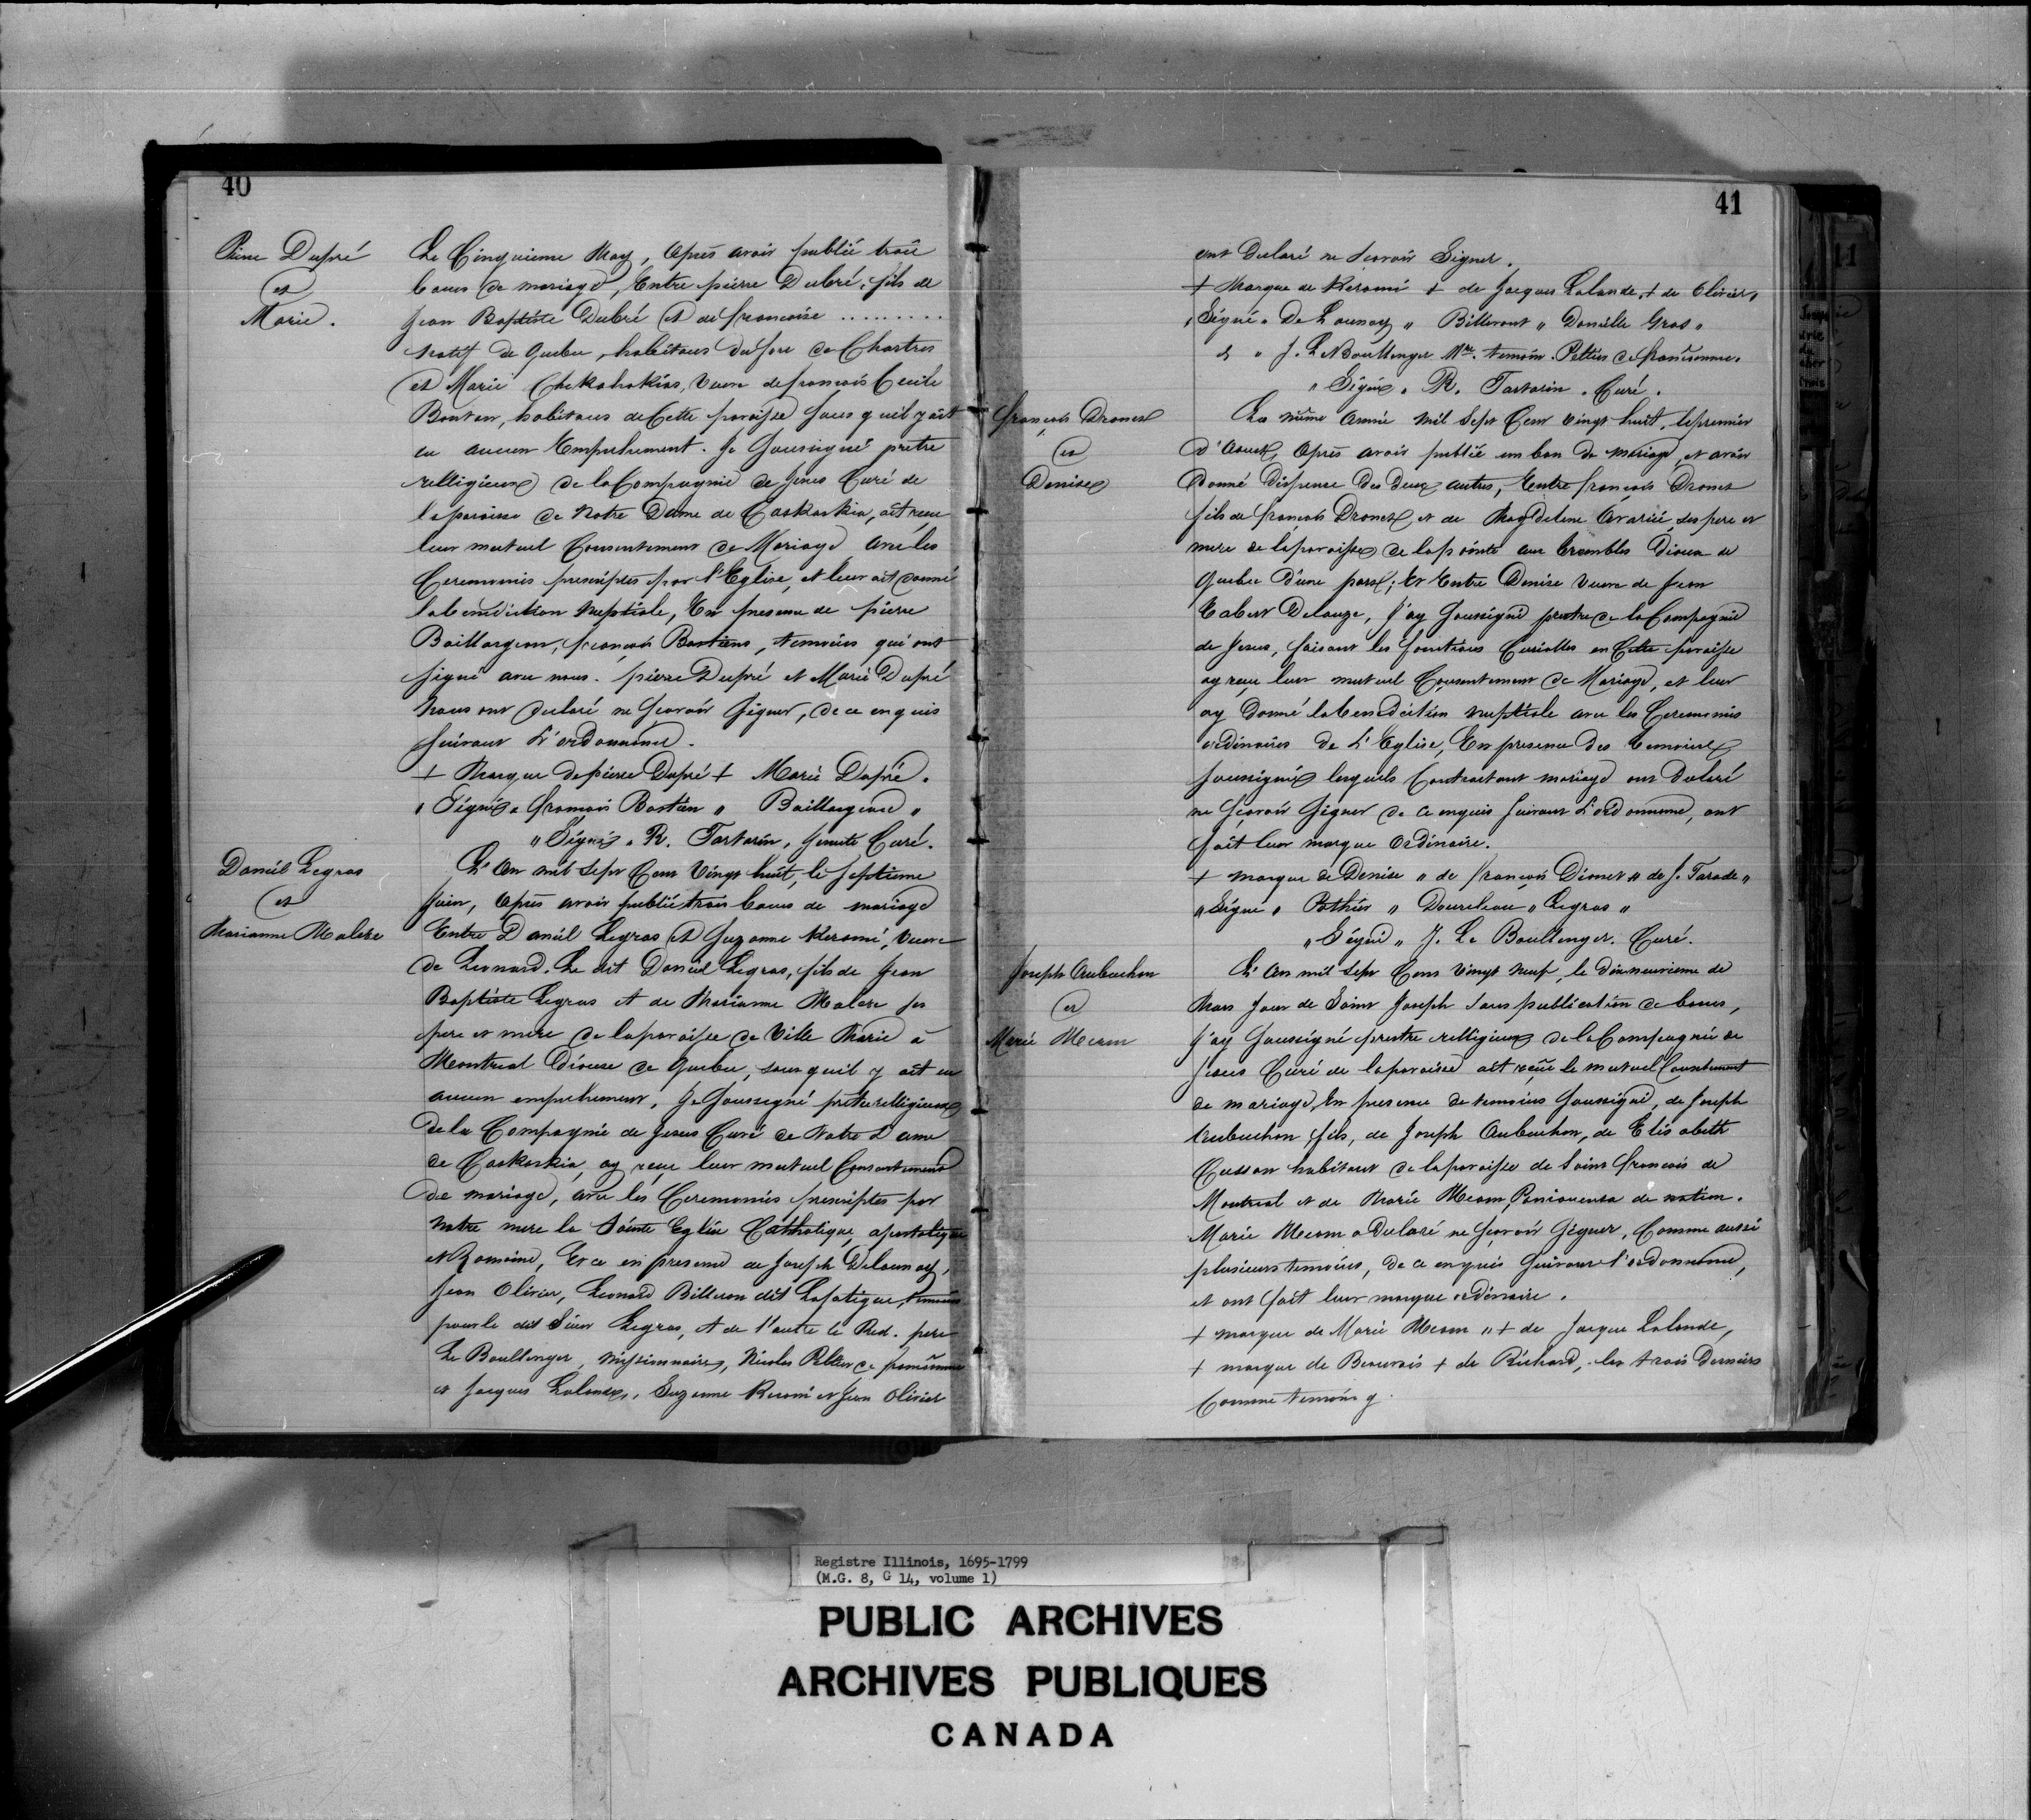 40
Pierre Dupré
et
Marie.
Le Cinquieme May, Apres avoir publié trois
bans de mariage, Entre pierre Dubré, fils de
Jean Baptiste Dubré et de francoise .........
natif de Quebec, habitans du fore de Chartres
et Marie Chekahokias, Veuve de francois Cecile
Bontem, habitans de Cette paroisse sans quil y ait
eu aucun Empechement. Je Soussigné pretre
relligieux de la Compagnie de Jesus Curé de
la paroisse de Notre Dame de Caskaskia, ait receu
leur mutuel Consentement de Mariage avec les
Ceremonies prescriptes par l'Eglise, et leur ait donné
la benediction Nuptiale, En presence de pierre
Baillargeon, francois Bastiens, temoins qui ont
signé avec nous. pierre Dupré et Marie Dupré
nous ont declaré ne scavoir signer, de ce enquis
suivant L'ordonnance.
+ Marque de pierre Dupré + Marie Dupré.
" Signés " francois Bastien " Baillargeon "
" Signé " R. Tartarin, Jesuite Curé.
Daniel Legras
et
Marianne Malere
L'An mil Sept Cent Vingt huit, le septieme
Juin, Apres avoir publié trois bans de mariage
Entre Daniel Legras et Suzanne Keromé, Veuve
de Leonard. Le dit Daniel Legras, fils de Jean
Baptiste Legras et de Marianne Malere ses
pere et mere de la paroisse de Ville Marie à
Montreal Diocese de Quebec, sans quil y ait eu
aucun empechement, Je Soussigné pretre relligieux
de la Compagnie de Jesus Curé de Notre Dame
de Caskaskia, ay reçu leur mutuel Consentement
de mariage, avec les Ceremonies prescriptes par
notre mere la Sainte Eglise Catholique, apostolique
et Romaine, Et ce en presence de Joseph Delaunay,
Jean Olivier, Leonard Billeron dit Lafatigue, temoins
pour le dit Sieur Legras, et de l'autre le Red. pere
Le Boullenger, missionnaire, Nicolas Peltier de franconne
et Jacques Lalande, Suzanne Keromé et Jean Olivier
41
ont declaré ne scavoir Signer.
+ Marque de Keromé + de Jacques Lalande, + de Olivier,
" Signé " De Launay " Billeront " Danielle Gras "
& " J. Le Boullenger Mre. temoin. Peltier de franconne.
" Signé " R. Tartarin. Curé.
francois Dronet
et
Denise
La même Année mil Sept Cent Vingt huit, le premier
d'Aoust, Apres avoir publié un ban de mariage, et avoir
Donné dispense des deux autres, Entre francois Dronet
fils de francois Dronet, et de Magdelene Avarié, ses pere et
mere de la paroisse de la pointe aux trembles Diocese de
Quebec d'une part; Et Entre Denise Veuve de Jean
Delauze, J'ay Soussigné pretre de la Compagnie
de Jesus, faisant les fonctions Curialles en Cette paroisse
ay reçu leur mutuel Consentement de Mariage, et leur
ay Donné la benediction nuptiale avec les Ceremonies
ordinaires de L'Eglise, En presence des temoins
soussignés lesquels Contractant mariage ont declaré
ne scavoir signer de ce enquis suivant L'ordonnance, ont
fait leur marque ordinaire.
+ marque de Denise " de francois Dronet " de J. Tarade "
" Signé " Pothier " " Legras "
" Signé " J. Le Boullenger. Curé.
Joseph Aubuchon
et
Marie Meaon
L'An mil Sept Cens Vingt Neuf, le dixneuvieme de
Mars Jour de Saint Joseph sans publication de bans,
J'ay Soussigné pretre relligieux de la Compagnie de
Jesus Curé de la paroisse ait reçu le mutuel Consentement
de mariage, En presence de temoins soussigné, de Joseph
Aubuchon fils, de Joseph Aubuchon, de Elisabeth
Cusson habitant de la paroisse de Saint francois de
Montreal et de Marie Meaon, Paniouensa de nation.
Marie Meaon a declaré ne scavoir signer, Comme aussi
plusieurs temoins, de ce enquis suivant l'ordonnance,
et ont fait leur marque ordinaire.
+ marque de Marie Meaon " + de Jacque Lalande,
+ marque de Beauvais + de Richard, les trois Derniers
Comme temoins
Registre Illinois, 1695-1799
(M.G. 8, G 14, volume 1)
PUBLIC ARCHIVES
ARCHIVES PUBLIQUES
CANADA